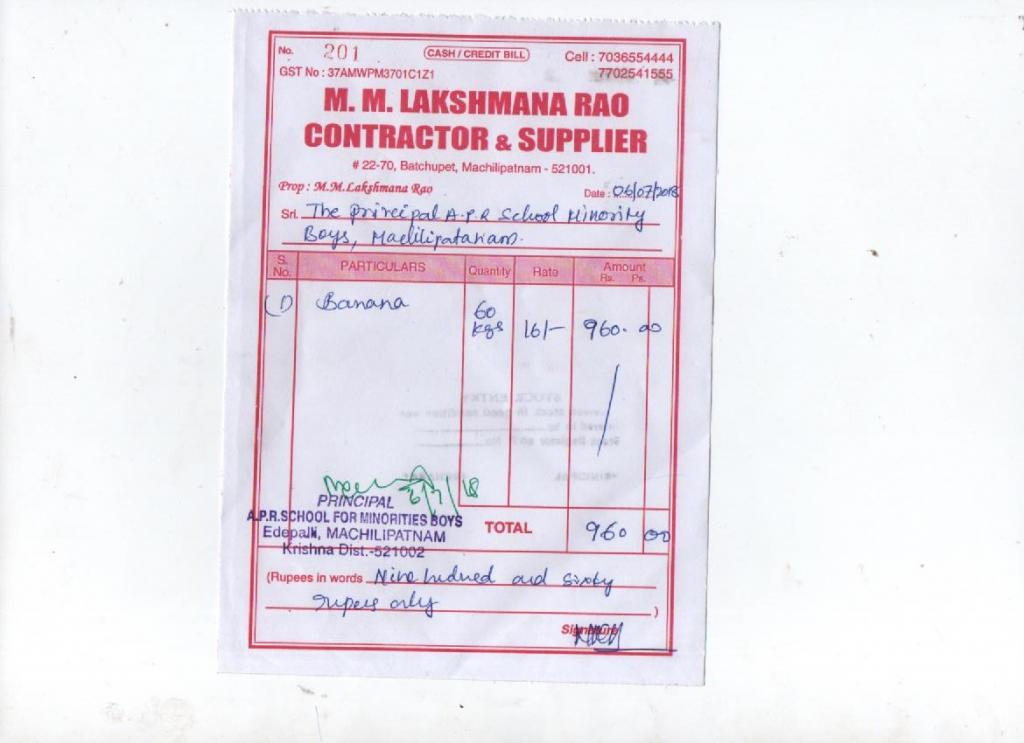 No. 201 CASH / CREDIT BILL Cell : 7036554444
GST No : 37AMWPM3701C1Z1 7702541555
M. M. LAKSHMANA RAO
CONTRACTOR & SUPPLIER
# 22-70, Batchupet, Machilipatnam - 521001.
Prop : M.M.Lakshmana Rao Date : 06/07/2018
Sri. The principal A.P.R School Minority
Boys, Machilipatanam.
S. No. PARTICULARS Quantity Rate Amount Rs. Ps.
(1) Banana 60 kgs 16/- 960.00
6/7/18
PRINCIPAL
A.P.R.SCHOOL FOR MINORITIES BOYS
Edepalli, MACHILIPATNAM
Krishna Dist.-521002
TOTAL 960 00
(Rupees in words Nine hudred and sixty
rupees only )
Signature